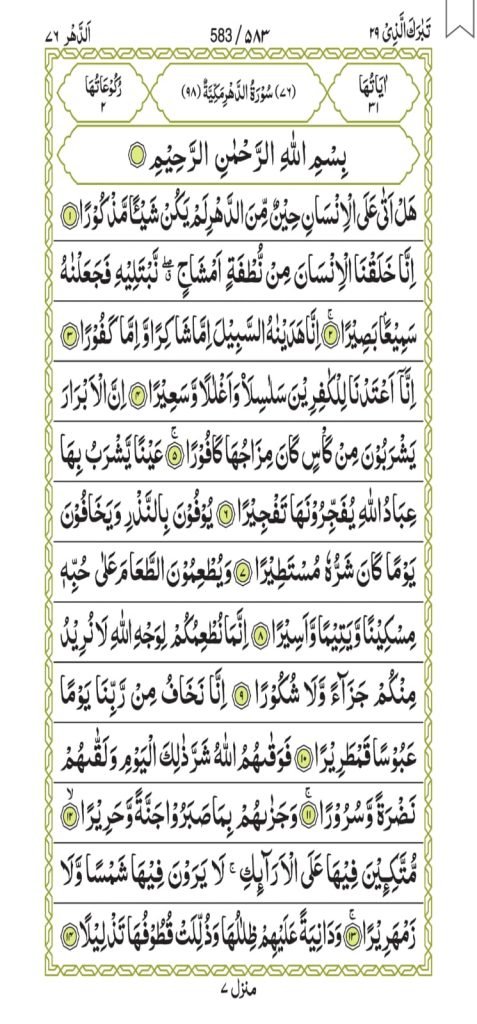 تَبٰرَكَ الَّذِیْ ٢٩ 583 / ٥٨٣ اَلدَّهْر ٧٦
اٰیَاتُهَا ٣١ (٧٦) سُوْرَةُ الدَّهْرِ مَكِّیَّةٌ (٩٨) رُكُوْعَاتُهَا ٢
بِسْمِ اللهِ الرَّحْمٰنِ الرَّحِیْمِ
هَلْ اَتٰى عَلَى الْاِنْسَانِ حِیْنٌ مِّنَ الدَّهْرِ لَمْ یَكُنْ شَیْـًٔا مَّذْكُوْرًا ١
اِنَّا خَلَقْنَا الْاِنْسَانَ مِنْ نُّطْفَةٍ اَمْشَاجٍ ۖۗ نَّبْتَلِیْهِ فَجَعَلْنٰهُ
سَمِیْعًۢا بَصِیْرًا ۚ ٢ اِنَّا هَدَیْنٰهُ السَّبِیْلَ اِمَّا شَاكِرًا وَّ اِمَّا كَفُوْرًا ٣
اِنَّاۤ اَعْتَدْنَا لِلْكٰفِرِیْنَ سَلٰسِلَا۟ وَ اَغْلٰلًا وَّ سَعِیْرًا ٤ اِنَّ الْاَبْرَارَ
یَشْرَبُوْنَ مِنْ كَاْسٍ كَانَ مِزَاجُهَا كَافُوْرًا ۚ ٥ عَیْنًا یَّشْرَبُ بِهَا
عِبَادُ اللهِ یُفَجِّرُوْنَهَا تَفْجِیْرًا ٦ یُوْفُوْنَ بِالنَّذْرِ وَ یَخَافُوْنَ
یَوْمًا كَانَ شَرُّهٗ مُسْتَطِیْرًا ٧ وَ یُطْعِمُوْنَ الطَّعَامَ عَلٰى حُبِّهٖ
مِسْكِیْنًا وَّ یَتِیْمًا وَّ اَسِیْرًا ٨ اِنَّمَا نُطْعِمُكُمْ لِوَجْهِ اللهِ لَا نُرِیْدُ
مِنْكُمْ جَزَآءً وَّ لَا شُكُوْرًا ٩ اِنَّا نَخَافُ مِنْ رَّبِّنَا یَوْمًا
عَبُوْسًا قَمْطَرِیْرًا ١٠ فَوَقٰىهُمُ اللهُ شَرَّ ذٰلِكَ الْیَوْمِ وَ لَقّٰىهُمْ
نَضْرَةً وَّ سُرُوْرًا ۚ ١١ وَ جَزٰىهُمْ بِمَا صَبَرُوْا جَنَّةً وَّ حَرِیْرًا ۙ ١٢
مُّتَّكِـِٕیْنَ فِیْهَا عَلَى الْاَرَآىِٕكِ ۚ لَا یَرَوْنَ فِیْهَا شَمْسًا وَّ لَا
زَمْهَرِیْرًا ۚ ١٣ وَ دَانِیَةً عَلَیْهِمْ ظِلٰلُهَا وَ ذُلِّلَتْ قُطُوْفُهَا تَذْلِیْلًا ١٤
منزل ٧